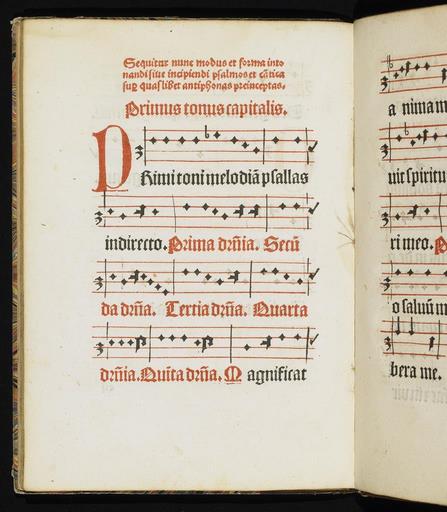 Sequitur nunc modus et forma into
nandi siue incipiendi psalmos et cātica
suꝑ quaslibet antiphonas preinceptas.
Primus tonus capitalis.
PRimi toni melodiā psallas
indirecto. Prima drn̄ia. Secū
da drn̄ia. Tertia drn̄ia. Quarta
drn̄ia. Quīta drn̄ia. Magnificat
a nimam
uit spiritu
ri meo.
o saluū m
bera me.